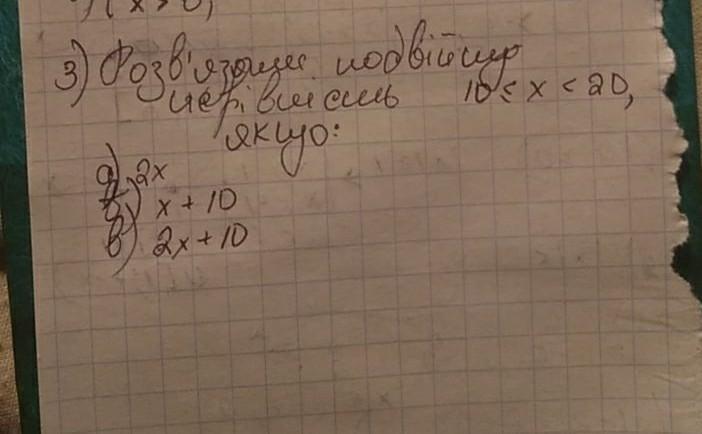 3) Розв'язати подвійну
нерівність 10 ≤ x < 20,
якщо:
а) 2x
б) x + 10
в) 2x + 10